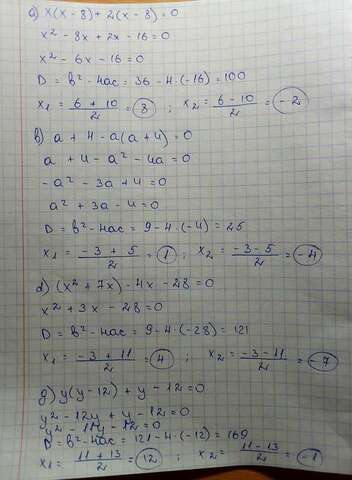 а) x(x - 8) + 2(x - 8) = 0
x² - 8x + 2x - 16 = 0
x² - 6x - 16 = 0
D = b² - 4ac = 36 - 4·(-16) = 100
x₁ = (6 + 10)/2 = 8 ; x₂ = (6 - 10)/2 = -2
в) a + 4 - a(a + 4) = 0
a + 4 - a² - 4a = 0
-a² - 3a + 4 = 0
a² + 3a - 4 = 0
D = b² - 4ac = 9 - 4·(-4) = 25
x₁ = (-3 + 5)/2 = 1 ; x₂ = (-3 - 5)/2 = -4
d) (x² + 7x) - 4x - 28 = 0
x² + 3x - 28 = 0
D = b² - 4ac = 9 - 4·(-28) = 121
x₁ = (-3 + 11)/2 = 4 ; x₂ = (-3 - 11)/2 = -7
д) y(y - 12) + y - 12 = 0
y² - 12y + y - 12 = 0
y² - 11y - 12 = 0
D = b² - 4ac = 121 - 4·(-12) = 169
x₁ = (11 + 13)/2 = 12 ; x₂ = (11 - 13)/2 = -1